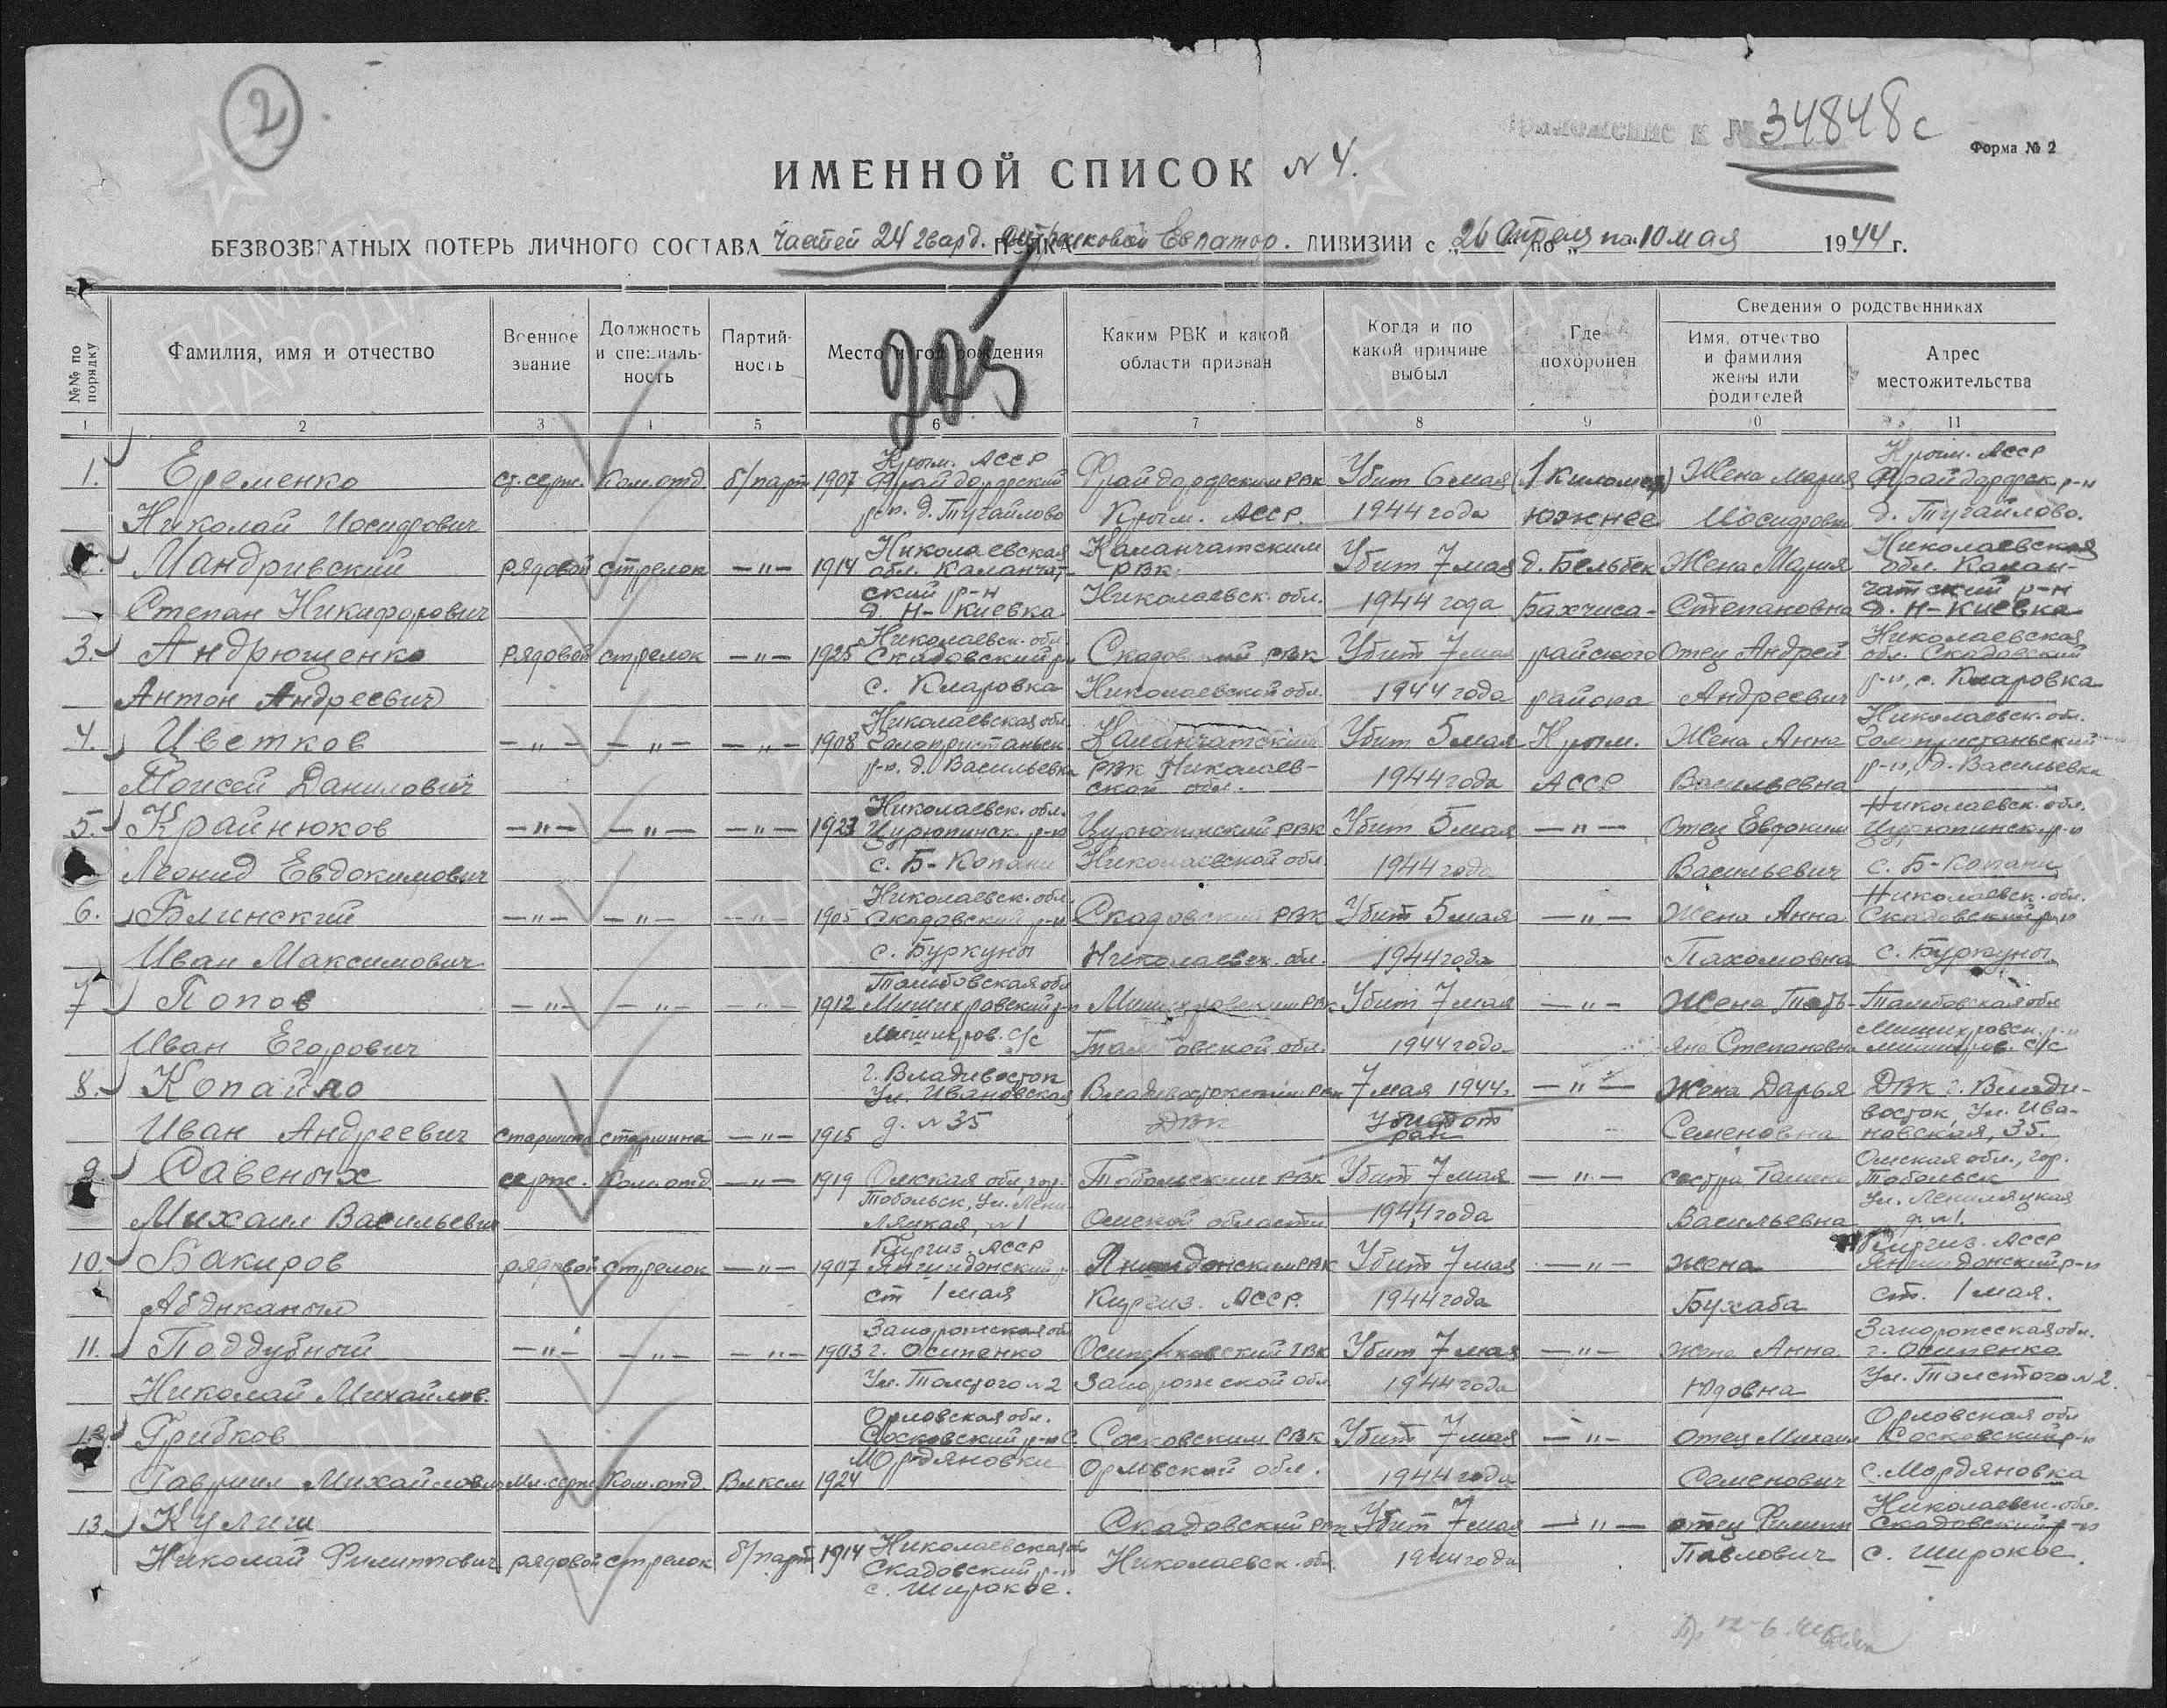 2
34848с
Форма № 2
ИМЕННОЙ СПИСОК № 4.
БЕЗВОЗВРАТНЫХ ПОТЕРЬ ЛИЧНОГО СОСТАВА частей 24 гвард. стрелковой Евпатор. ДИВИЗИИ с „26 Апреля по 10 мая 1944 г.
№№ по порядку
Фамилия, имя и отчество
Военное звание
Должность и специальность
Партийность
Место и год рождения
Каким РВК и какой области призван
Когда и по какой причине выбыл
Где похоронен
Сведения о родственниках
Имя, отчество и фамилия жены или родителей
Адрес местожительства
1 2 3 4 5 6 7 8 9 10 11
1. Еременко Николай Иосифович ст. серж. Ком. отд. б/парт 1907 Крым. АССР Фрайдорфский р-н. д. Тугайлово Фрайдорфским РВК Крым. АССР. Убит 6 мая 1944 года (1 километр) южнее Жена Мария Иосифовна Крым. АССР Фрайдорфск р-н д. Тугайлово.
Мандривский Степан Никифорович рядовой стрелок —"— 1914 Николаевская обл. Каланчатский р-н д. Н-Киевка Каланчатским РВК Николаевск. обл. Убит 7 мая 1944 года д. Бельбек Бахчиса- Жена Мария Степановна Николаевская обл. Каланчатский р-н д. Н-Киевка
3. Андрющенко Антон Андреевич рядовой стрелок —"— 1925 Николаевск. обл. Скадовский р-н с. Кларовка Скадовский РВК Николаевской обл. Убит 7 мая 1944 года райского района Отец Андрей Андреевич Николаевская обл. Скадовский р-н, с. Кларовка
4. Цветков Моисей Данилович —"— —"— —"— 1908 Николаевская обл. Голопристаньск. р-н. д. Васильевка Каланчатский РВК Николаевской обл. Убит 5 мая 1944 года Крым. АССР Жена Анна Васильевна Николаевск. обл. Голопристаньский р-н, д. Васильевка
5. Крайнюков Леонид Евдокимович —"— —"— —"— 1923 Николаевск. обл. Цурюпинск р-н с. Б-Копани Цурюпинский РВК Николаевской обл. Убит 5 мая 1944 года —"— Отец Евдоким Васильевич Николаевск. обл. Цурюпинск р-н с. Б-Копани
6. Блинский Иван Максимович —"— —"— —"— 1905 Николаевск. обл. Скадовский р-н с. Буркуны Скадовский РВК Николаевск. обл. Убит 5 мая 1944 года —"— Жена Анна Пахомовна Николаевск. обл. Скадовский р-н с. Буркуны
7 Попов Иван Егорович —"— —"— —"— 1912 Тамбовская обл. с/с Тамбовской обл. Убит 7 мая 1944 года —"— Жена Татьяна Степановна Тамбовская обл с/с
8. Копайло Иван Андреевич старшина старшина —"— 1915 г. Владивосток Ул. Ивановская д. № 35 Владивостокским РВК ДВК 7 мая 1944 г. Убит от ран —"— Жена Дарья Семеновна ДВК г. Владивосток, Ул. Ивановская, 35.
9 Савеных Михаил Васильевич серж. Ком. отд —"— 1919 Омская обл, гор. Тобольск, Ул. № 1 Тобольским РВК Омской области Убит 7 мая 1944 года —"— сестра Васильевна Омская обл., гор. Тобольск Ул. д. № 1.
10. Бакиров Абдыканым рядовой стрелок —"— 1907 Киргиз. АССР ст 1 мая РВК Киргиз. АССР. Убит 7 мая 1944 года —"— жена Бухаба Киргиз. АССР р-н ст. 1 мая.
11. Поддубный Николай Михайлов. —"— —"— —"— 1903 Запорожская обл г. Осипенко Ул. Толстого № 2 Осипенковский ГВК Запорожской обл Убит 7 мая 1944 года —"— Жена Анна Юдовна Запорожская обл. г. Осипенко Ул. Толстого № 2.
12. Грибков Гавриил Михайлович Мл. серж Ком. отд. Влксм 1924 Орловская обл. Сосковский р-н с. Мордяновки Сосковским РВК Орловской обл. Убит 7 мая 1944 года —"— отец Михаил Семенович Орловская обл Сосковский р-н с. Мордяновка
13. Кулиш Николай Филиппович рядовой стрелок б/парт 1914 Николаевская обл Скадовский р-н с. Широкое. Скадовский РВК Николаевск. обл. Убит 7 мая 1944 года —"— отец Филипп Павлович Николаевск. обл. Скадовский р-н с. Широкое.